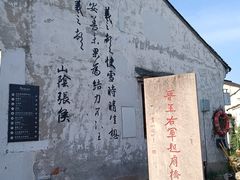 羲之頓首快雪時晴佳想
安善未果為結力不次王
羲之頓首
山陰張侯
晉王右軍題扇橋